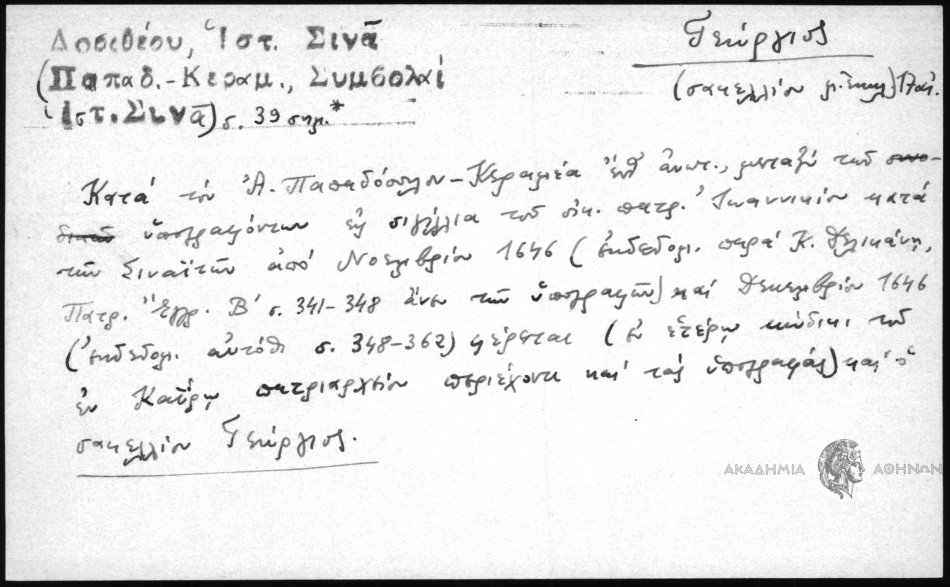 Δοσιθέου, Ἱστ. Σινᾶ
(Παπαδ.-Κεραμ., Συμβολαί
Ἱστ. Σινᾶ) σ. 39 σημ.*
Γεώργιος
(σακελλίου μ. Ἐκκλ.) 17 αἰ.
Κατά τόν Ἀ. Παπαδόπουλον-Κεραμέα ἔνθ' ἀνωτ., μεταξύ τῶν συνο-
δικῶν ὑπογραψάντων ἐν σιγίλλια τοῦ οἰκ. πατρ. Ἰωαννικίου κατά
τῶν Σιναϊτῶν ἀπό Νοεμβρίου 1646 (ἐκδεδομ. παρά Κ. Δελικάνη,
Πατρ. Ἔγγρ. Β' σ. 341-348 ἄνευ τῶν ὑπογραφῶν) καί Δεκεμβρίου 1646
(ἐκδεδομ. αὐτόθι σ. 348-362) φέρεται (ἐν ἑτέρῳ κώδικι τοῦ
ἐν Καΐρῳ πατριαρχείου περιέχοντι καί τάς ὑπογραφάς) καί ὁ
σακελλίου Γεώργιος.
ΑΚΑΔΗΜΙΑ ΑΘΗΝΩΝ